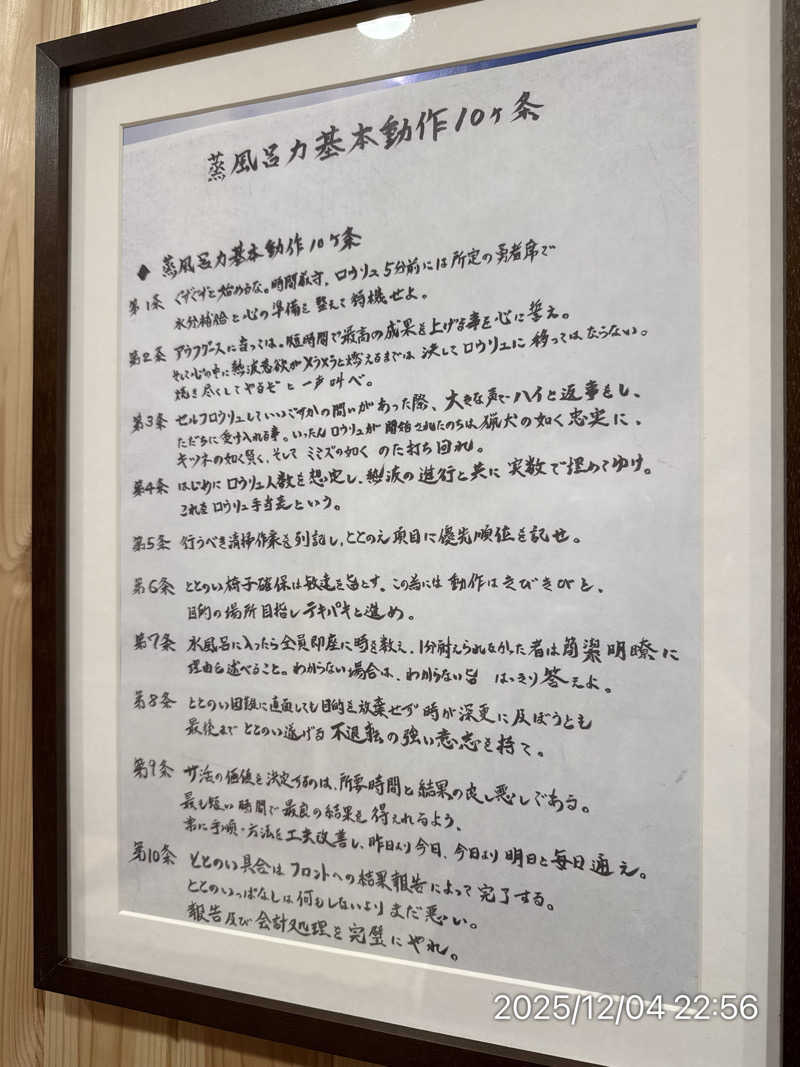 蒸風呂力基本動作10ヶ条
◆ 蒸風呂力基本動作10ヶ条
第1条 ぐずぐずと始めるな。時間厳守。ロウリュ5分前には所定の勇者席で
水分補給と心の準備を整えて待機せよ。
第2条 アウフグースに当っては。短時間で最高の成果を上げる事を心に誓え。
そして心の中に熱波意欲がメラメラと燃えるまでは決してロウリュに移ってはならない。
焼き尽くしてやるぞと一声叫べ。
第3条 セルフロウリュしていいですかの問いがあった際、大きな声でハイと返事をし、
ただちに受け入れる事。いったんロウリュが開始されたのちは猟犬の如く忠実に、
キツネの如く賢く、そしてミミズの如くのた打ち回れ。
第4条 はじめにロウリュ人数を想定し、熱波の進行と共に実数で埋めてゆけ。
これをロウリュ手当表という。
第5条 行うべき清掃作業を列記し、ととのえ項目に優先順位を記せ。
第6条 ととのい椅子確保は敏速を旨とす。この為には動作はきびきびと、
目的の場所目指しテキパキと進め。
第7条 水風呂に入ったら全員即座に時を数え、1分耐えられなかった者は簡潔明瞭に
理由を述べること。わからない場合は、わからない旨 はっきり答えよ。
第8条 ととのい困難に直面しても目的を放棄せず時が深更に及ぼうとも
最後までととのい遂げる不退転の強い意志を持て。
第9条 サ活の価値を決定するのは、所要時間と結果の良し悪しである。
最も短い時間で最良の結果を得られるよう、
常に手順・方法を工夫改善し、昨日より今日、今日より明日と毎日通え。
第10条 ととのい具合はフロントへの結果報告によって完了する。
ととのいっぱなしは何もしないよりまだ悪い。
報告及び会計処理を完璧にやれ。
2025/12/04 22:56